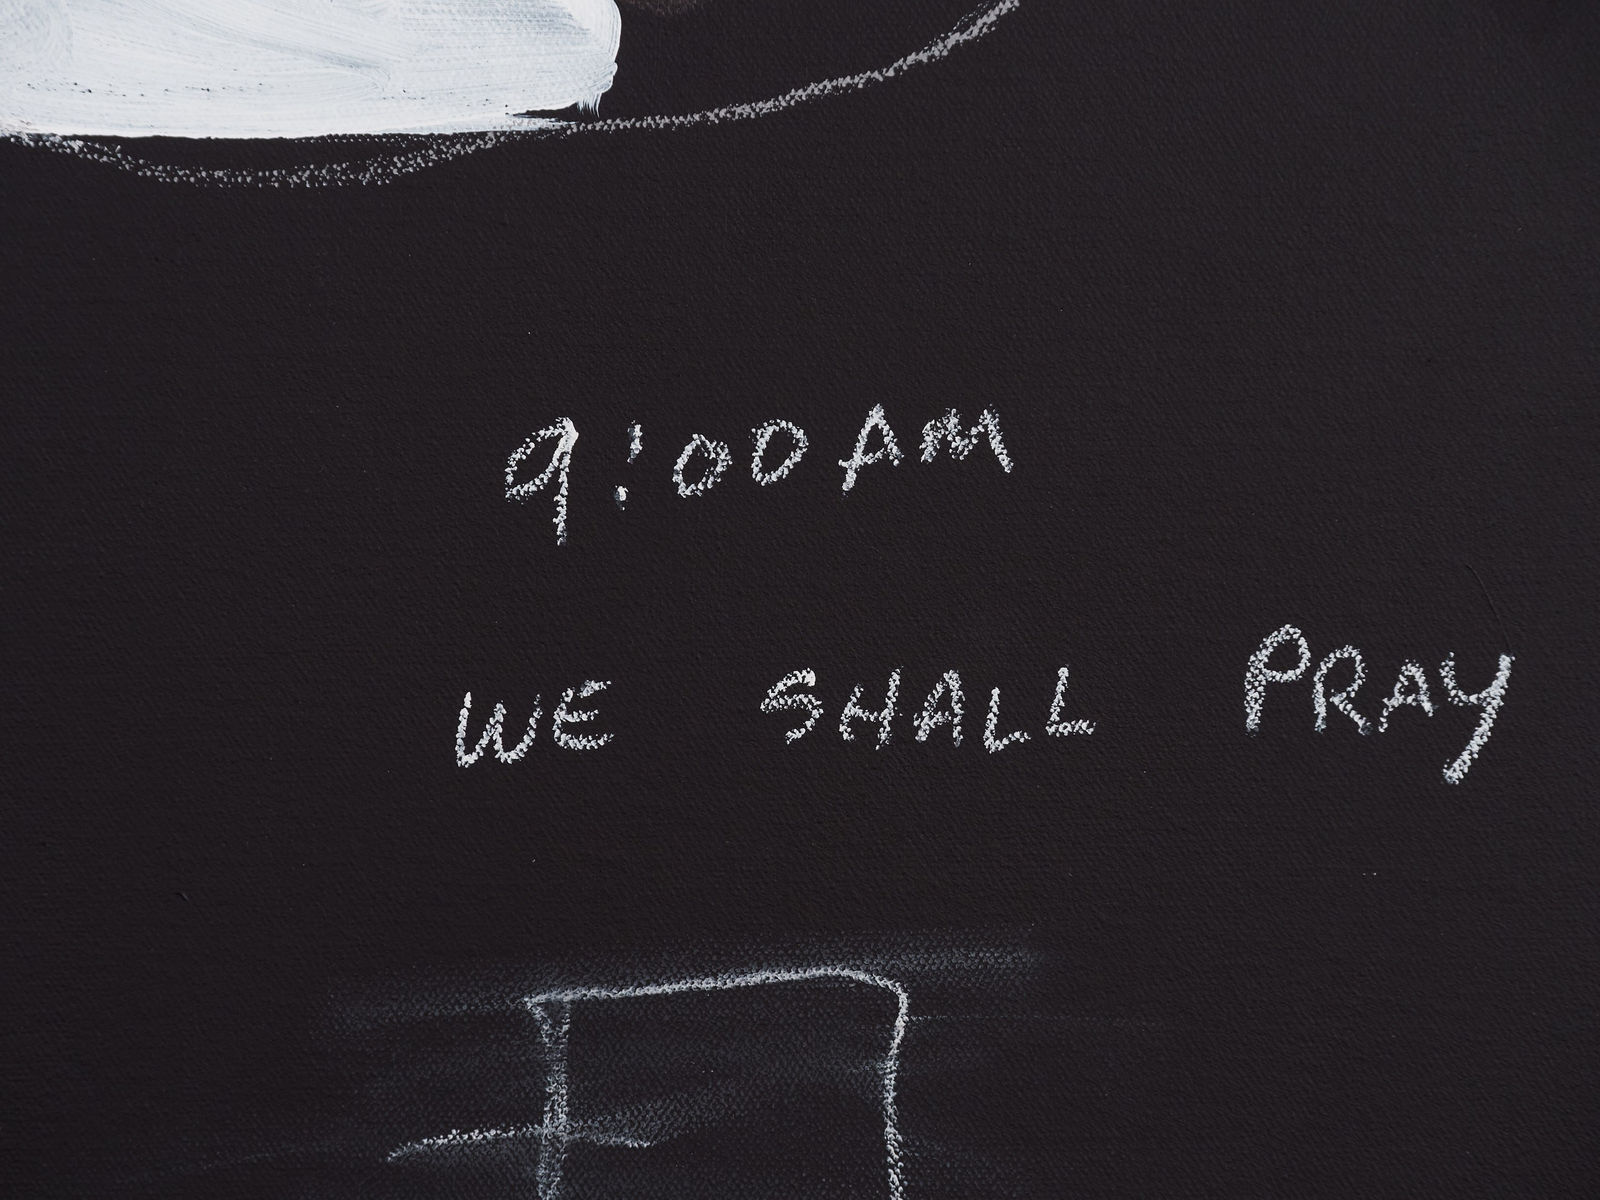 9:00AM
WE SHALL PRAY